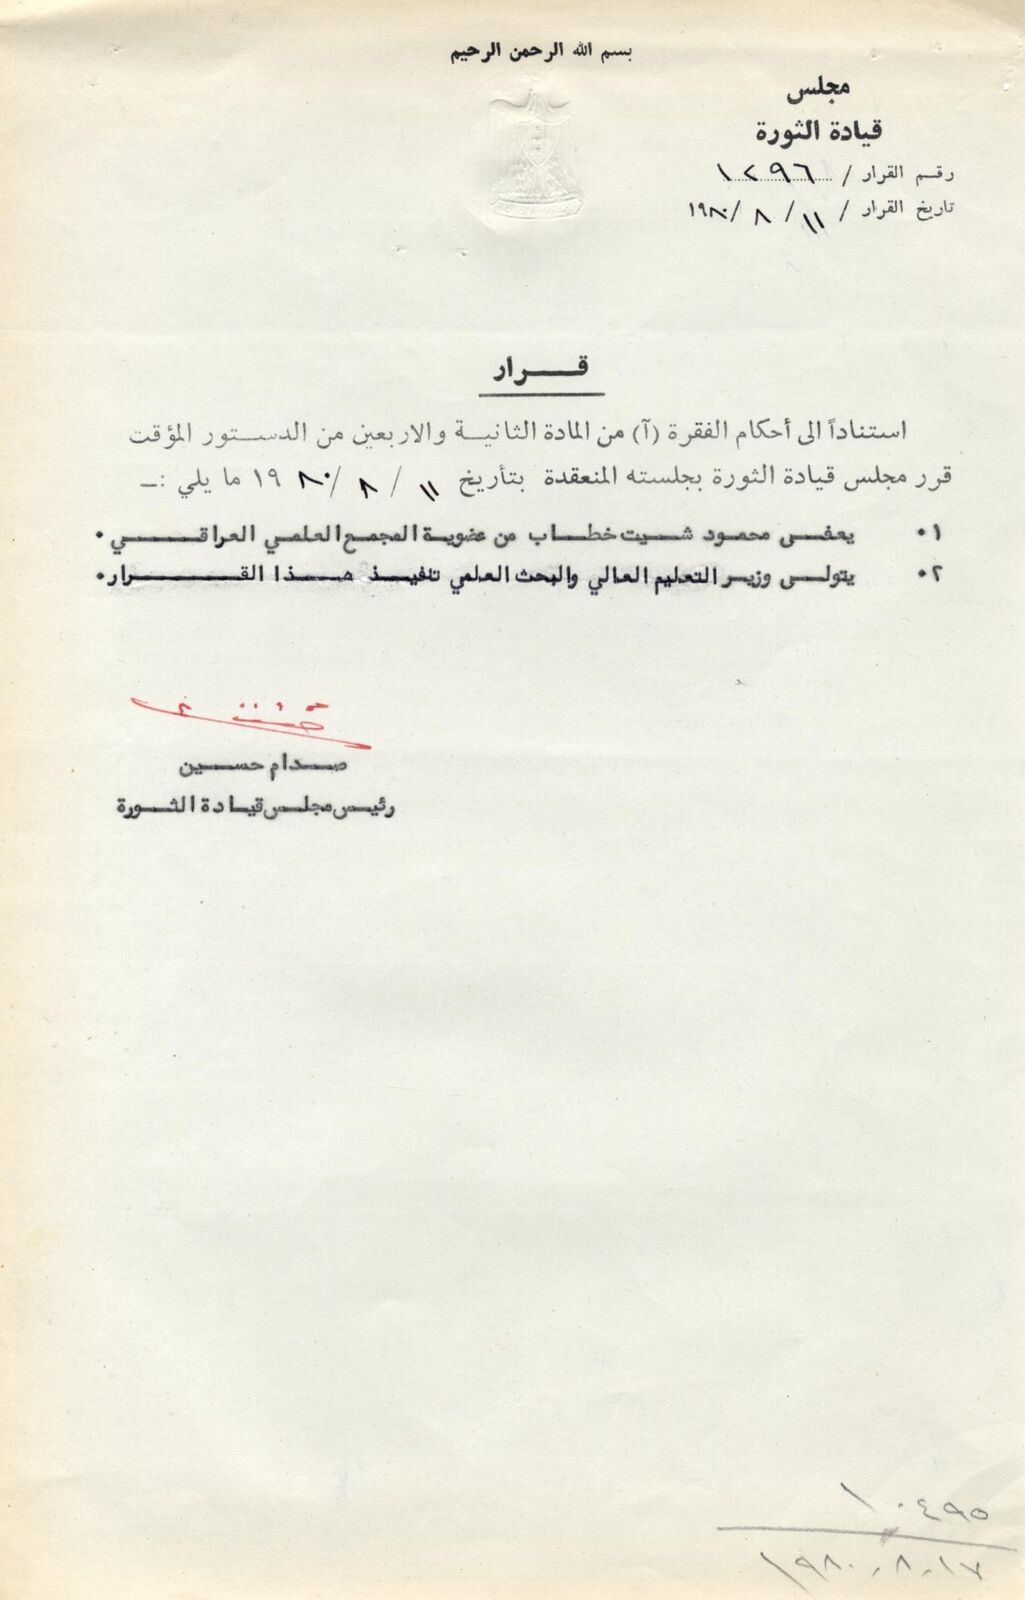 بسم الله الرحمن الرحيم
مجلس
قيادة الثورة
رقم القرار / ١٢٩٦
تاريخ القرار / ١١ / ٨ / ١٩٨٠
قـــرار
استناداً الى أحكام الفقرة (آ) من المادة الثانيـة والاربعين من الدسـتور المؤقت
قرر مجلس قيادة الثورة بجلسته المنعقدة بتأريخ ١١ / ٨ / ١٩٨٠ ما يلي :ـ
١٠ يعفـى محمـود شـيت خطـاب من عضويـة المجمع العلمي العراقـــي ٠
٢٠ يتولـى وزيـر التعليـم العالي والبحث العلمي تنفيـذ هـذا القـــرار٠
صـدام حسـين
رئيـس مجلـس قيـادة الثـورة
١٠٤٩٥
١٩٨٠.٨.١٧